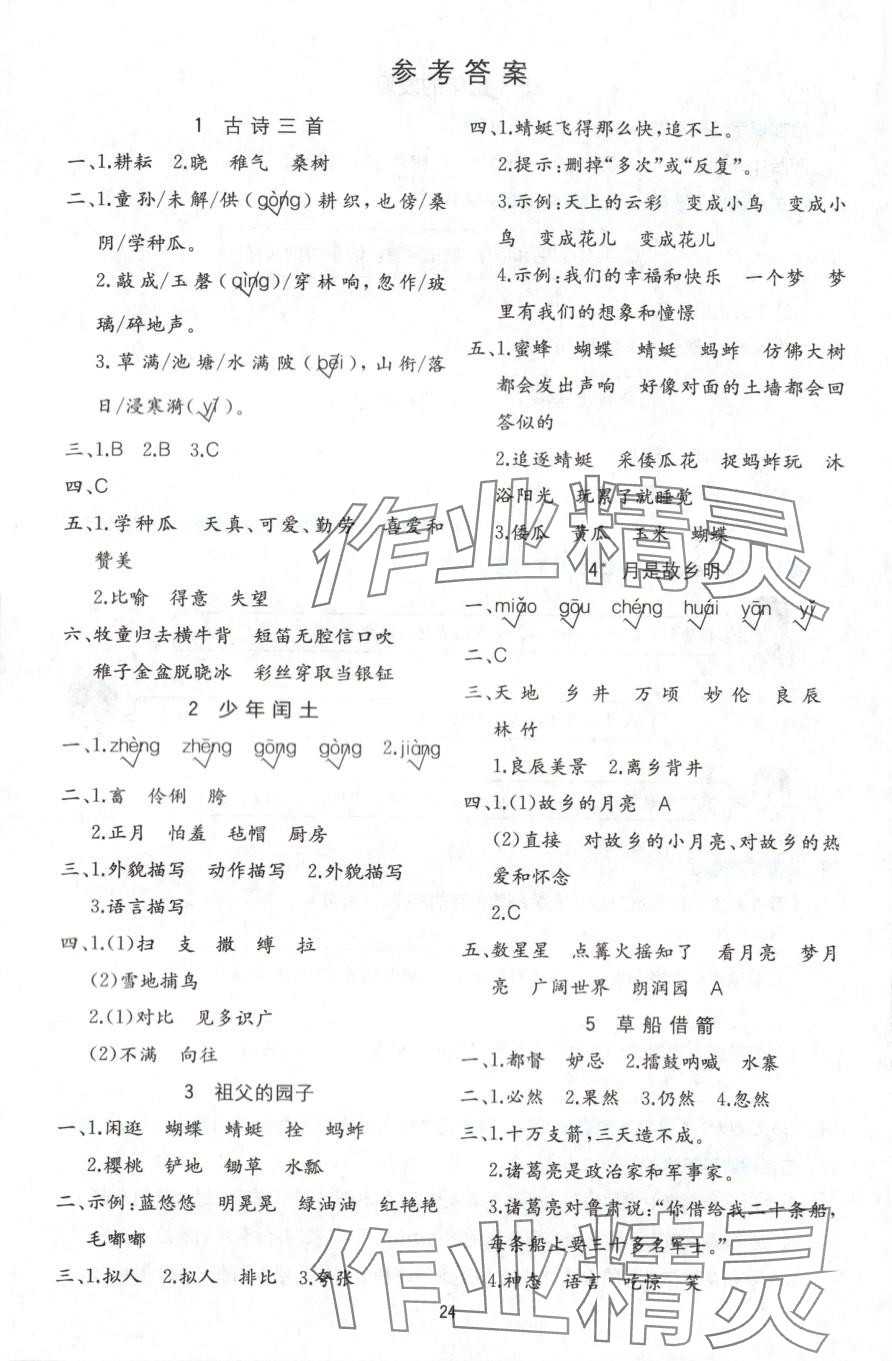 参考答案
1 古诗三首
一、1.耕耘 2.晓 稚气 桑树
二、1.童孙/未解/供(gòng)耕织,也傍/桑
阴/学种瓜。
2.敲成/玉磬(qìng)/穿林响,忽作/玻
璃/碎地声。
3.草满/池塘/水满陂(bēi),山衔/落
日/浸寒漪(yī)。
三、1.B 2.B 3.C
四、C
五、1.学种瓜 天真、可爱、勤劳 喜爱和
赞美
2.比喻 得意 失望
六、牧童归去横牛背 短笛无腔信口吹
稚子金盆脱晓冰 彩丝穿取当银钲
2 少年闰土
一、1.zhèng zhēng gōng gòng 2.jiàng
二、1.畜 伶俐 胯
2.正月 怕羞 毡帽 厨房
三、1.外貌描写 动作描写 2.外貌描写
3.语言描写
四、1.(1)扫 支 撒 缚 拉
(2)雪地捕鸟
2.(1)对比 见多识广
(2)不满 向往
3 祖父的园子
一、1.闲逛 蝴蝶 蜻蜓 拴 蚂蚱
2.樱桃 铲地 锄草 水瓢
二、示例:蓝悠悠 明晃晃 绿油油 红艳艳
毛嘟嘟
三、1.拟人 2.拟人 排比 3.夸张
四、1.蜻蜓飞得那么快,追不上。
2.提示:删掉“多次”或“反复”。
3.示例:天上的云彩 变成小鸟 变成小
鸟 变成花儿 变成花儿
4.示例:我们的幸福和快乐 一个梦 梦
里有我们的想象和憧憬
五、1.蜜蜂 蝴蝶 蜻蜓 蚂蚱 仿佛大树
都会发出声响 好像对面的土墙都会回
答似的
2.追逐蜻蜓 采倭瓜花 捉蚂蚱玩 沐
浴阳光 玩累了就睡觉
3.倭瓜 黄瓜 玉米 蝴蝶
4* 月是故乡明
一、miǎo gōu chéng huái yān yǐ
二、C
三、天地 乡井 万顷 妙伦 良辰
林竹
1.良辰美景 2.离乡背井
四、1.(1)故乡的月亮 A
(2)直接 对故乡的小月亮、对故乡的热
爱和怀念
2.C
五、数星星 点篝火摇知了 看月亮 梦月
亮 广阔世界 朗润园 A
5 草船借箭
一、1.都督 妒忌 2.擂鼓呐喊 水寨
二、1.必然 2.果然 3.仍然 4.忽然
三、1.十万支箭,三天造不成。
2.诸葛亮是政治家和军事家。
3.诸葛亮对鲁肃说:“你借给我二十条船,
每条船上要三十多名军士。”
4.神态 语言 吃惊 笑
24
作业精灵
作业精灵